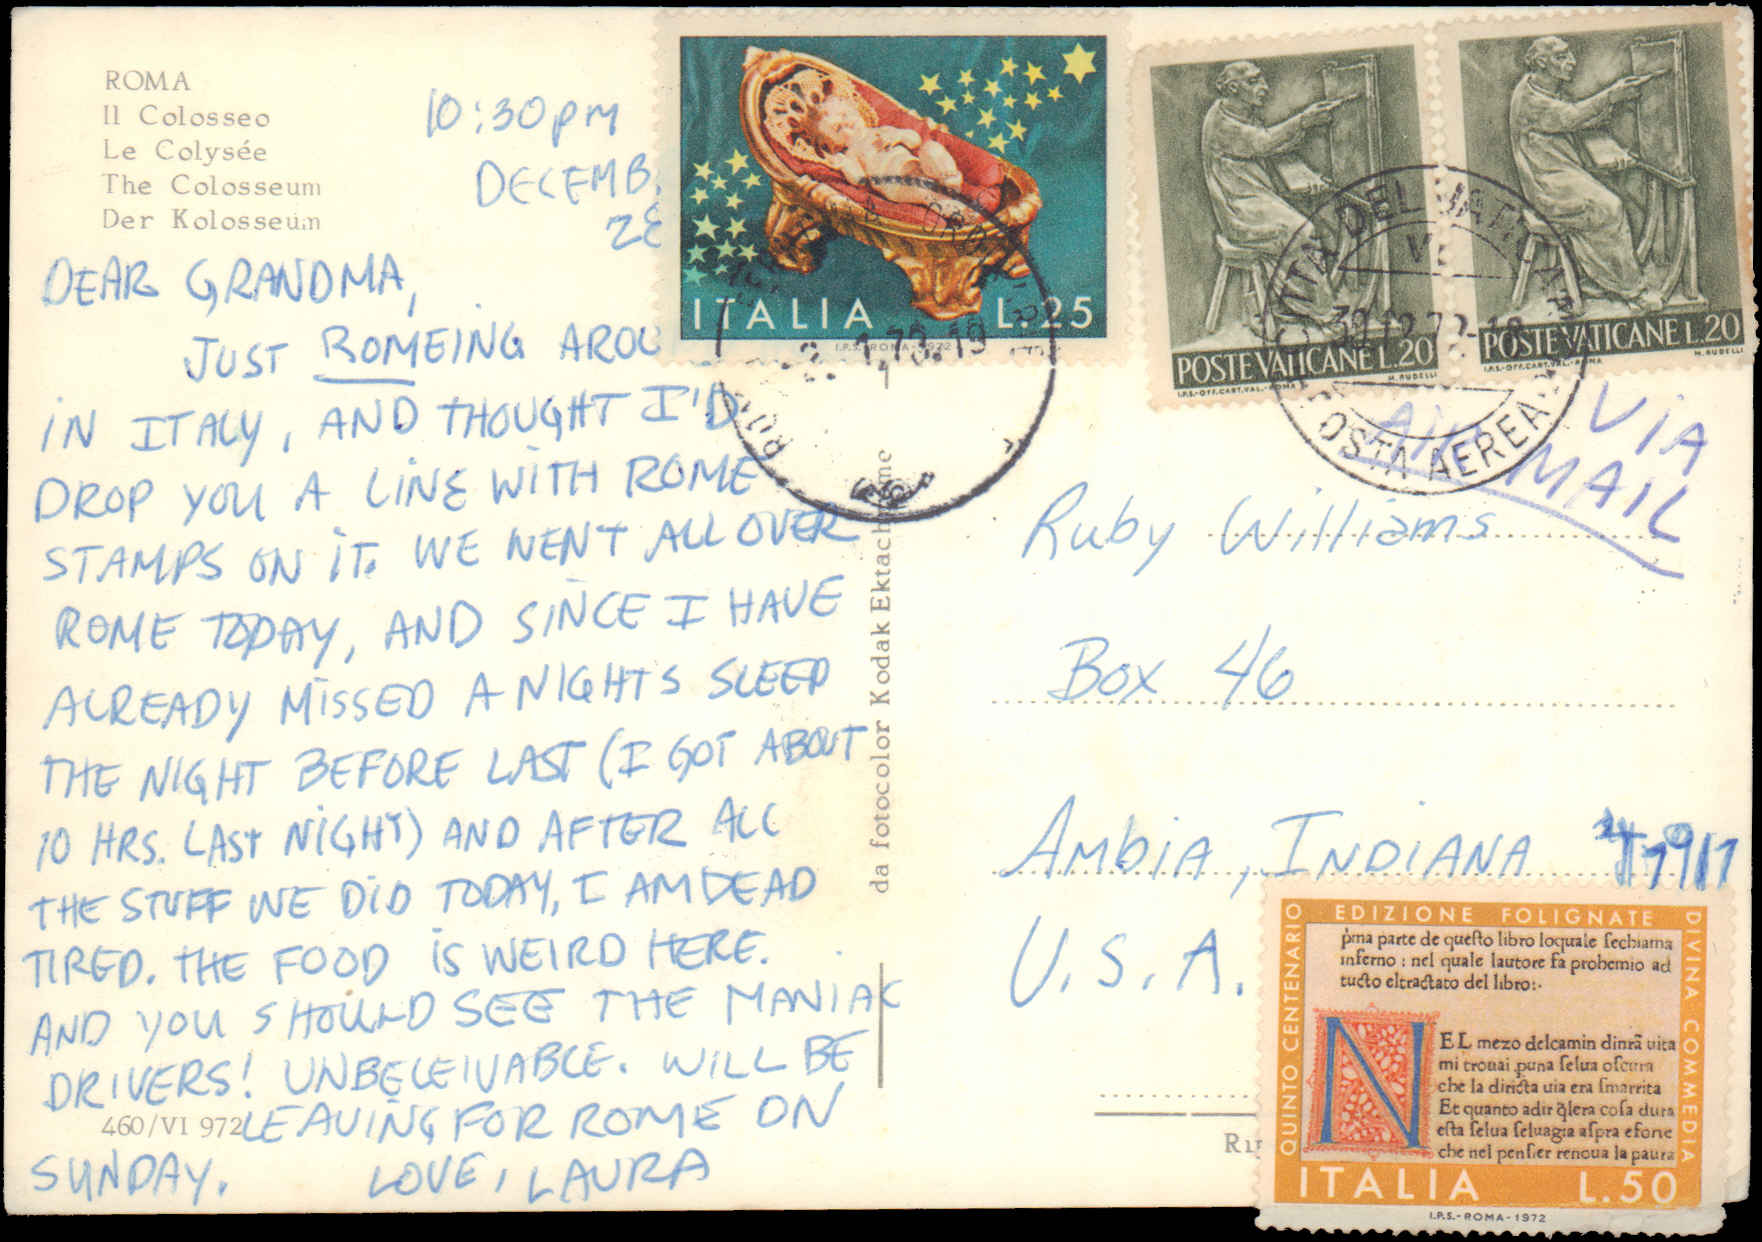 ROMA
Il Colosseo
Le Colysée
The Colosseum
Der Kolosseum
10:30pm
DECEMB
28
DEAR GRANDMA,
JUST ROMEING AROU
IN ITALY, AND THOUGHT I'D
DROP YOU A LINE WITH ROME
STAMPS ON IT. WE WENT ALL OVER
ROME TODAY, AND SINCE I HAVE
ALREADY MISSED A NIGHTS SLEEP
THE NIGHT BEFORE LAST (I GOT ABOUT
10 HRS. LAST NIGHT) AND AFTER ALL
THE STUFF WE DID TODAY, I AM DEAD
TIRED. THE FOOD IS WEIRD HERE.
AND YOU SHOULD SEE THE MANIAC
DRIVERS! UNBELEIVABLE. WILL BE
LEAVING FOR ROME ON
SUNDAY. LOVE, LAURA
460/VI 972
da fotocolor Kodak Ektachrome
ITALIA L.25
I.P.S. ROMA-1972
POSTE VATICANE L.20
I.P.S.-OFF.CART.VAL.-ROMA M. RUDELLI
POSTE VATICANE L.20
I.P.S.-OFF.CART.VAL.-ROMA M. RUDELLI
CITTA DEL VATICANO
POSTA AEREA
VIA
AIR MAIL
Ruby Williams
Box 46
Ambia, INDIANA
U.S.A.
QUINTO CENTENARIO
EDIZIONE FOLIGNATE
DIVINA COMMEDIA
pma parte de questo libro loquale sechiama
inferno : nel quale lautore fa prohemio ad
tucto eltractato del libro:.
NEL mezo delcamin dinrã uita
mi trouai puna selua oscura
che la diricta uia era smarrita
Et quanto adir q̃lera cosa dura
esta selua seluagia aspra eforte
che nel pensier renoua la paura
ITALIA L.50
I.P.S.-ROMA-1972